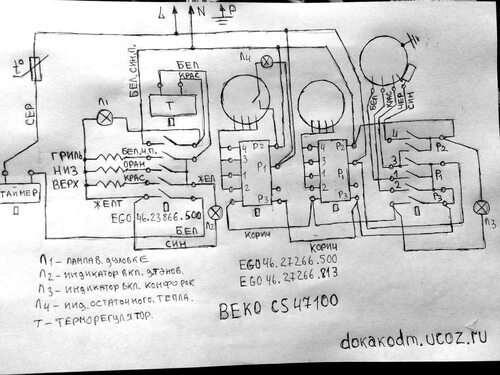 L N P
t°
СЕР
БЕЛ.СИН.П.
БЕЛ
КРАС
Л4
Л1
Т
БЕЛ
КРАС
ЧЕР
СИН
ГРИЛЬ
БЕЛ.Ч.П.
НИЗ
ОРАН
ВЕРХ
КРАС
ЖЕЛ
ТАЙМЕР
ЖЕЛТ
EGO 46.23866.500
БЕЛ
СИН
Л2
4 P2
3
P1
2
1
P3
4 P2
3
P1
2
1
P3
4
P2
3
P1
2
1
P3
Л3
КОРИЧ
КОРИЧ
EGO 46.27266.500
EGO 46.27266.813
Л1 - ЛАМПА В ДУХОВКЕ
Л2 - ИНДИКАТОР ВКЛ. ДУХОВ.
Л3 - ИНДИКАТОР ВКЛ. КОНФОРОК
Л4 - ИНД. ОСТАТОЧНОГО ТЕПЛА.
Т - ТЕРМОРЕГУЛЯТОР.
BEKO CS47100
dokakodm.ucoz.ru